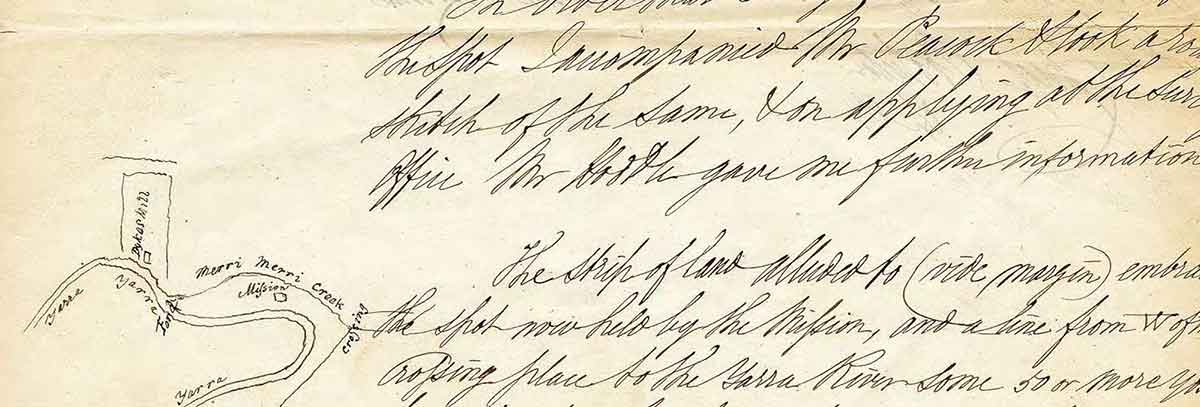 the spot I accompanied Mr Peacock & took a ro
sketch of the same, & on applying at the Surv
Office Mr Hoddle gave me further information
The strip of land alluded to (vide margin) embra
the spot now held by the Mission, and a line from W of
Crossing place to the Yarra River some 50 or more y
Dykes Mill
Yarra
Yarra
Ford
Merri Merri Creek
Mission
Crossing
Yarra